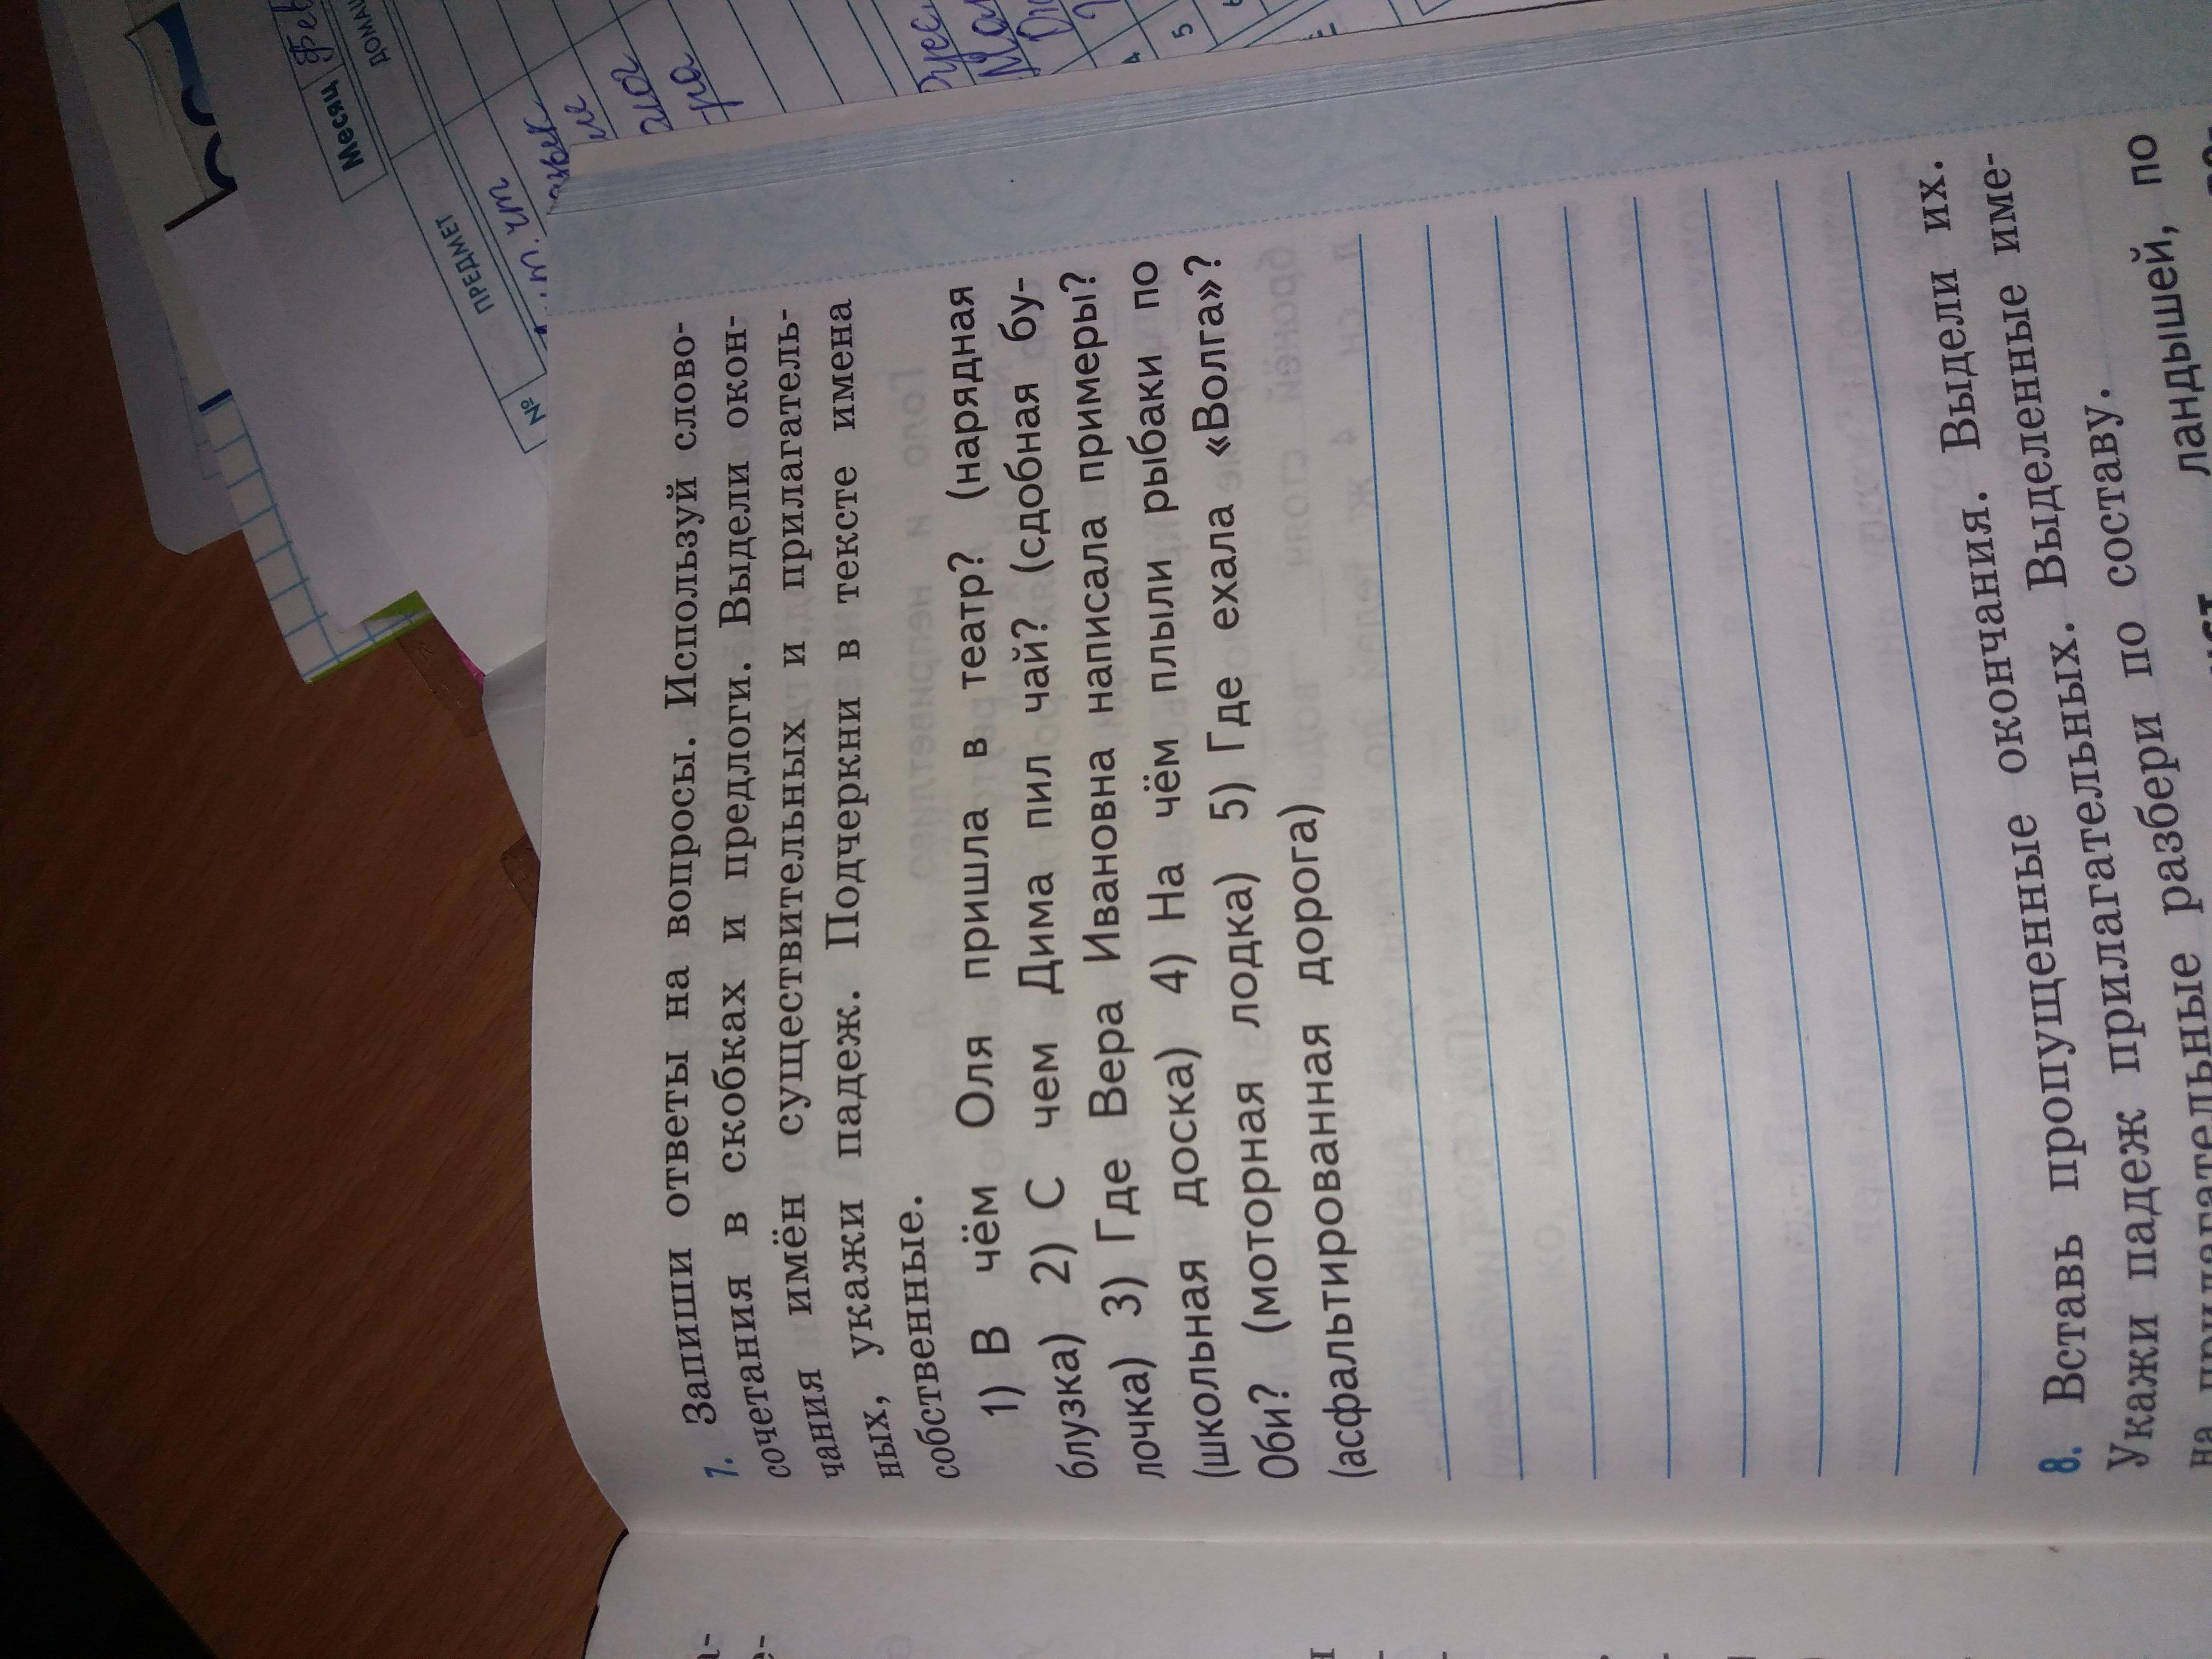 Месяц
ДОМАШ
№
ПРЕДМЕТ
4
5
7. Запиши ответы на вопросы. Используй слово-
сочетания в скобках и предлоги. Выдели окон-
чания имён существительных и прилагатель-
ных, укажи падеж. Подчеркни в тексте имена
собственные.
1) В чём Оля пришла в театр? (нарядная
блузка) 2) С чем Дима пил чай? (сдобная бу-
лочка) 3) Где Вера Ивановна написала примеры?
(школьная доска) 4) На чём плыли рыбаки по
Оби? (моторная лодка) 5) Где ехала «Волга»?
(асфальтированная дорога)
8. Вставь пропущенные окончания. Выдели их.
Укажи падеж прилагательных. Выделенные име-
на прилагательные разбери по составу.
ландышей, по